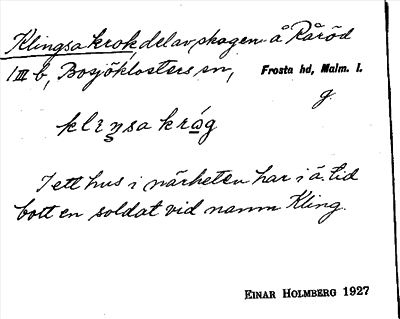 Klingsa krok, del av skogen å Råröd
1 III b, Bosjöklosters sn, Frosta hd, Malm. l.
g.
klıŋsa krɷ́g
I ett hus i närheten har i ä. tid
bott en soldat vid namn Kling.
EINAR HOLMBERG 1927